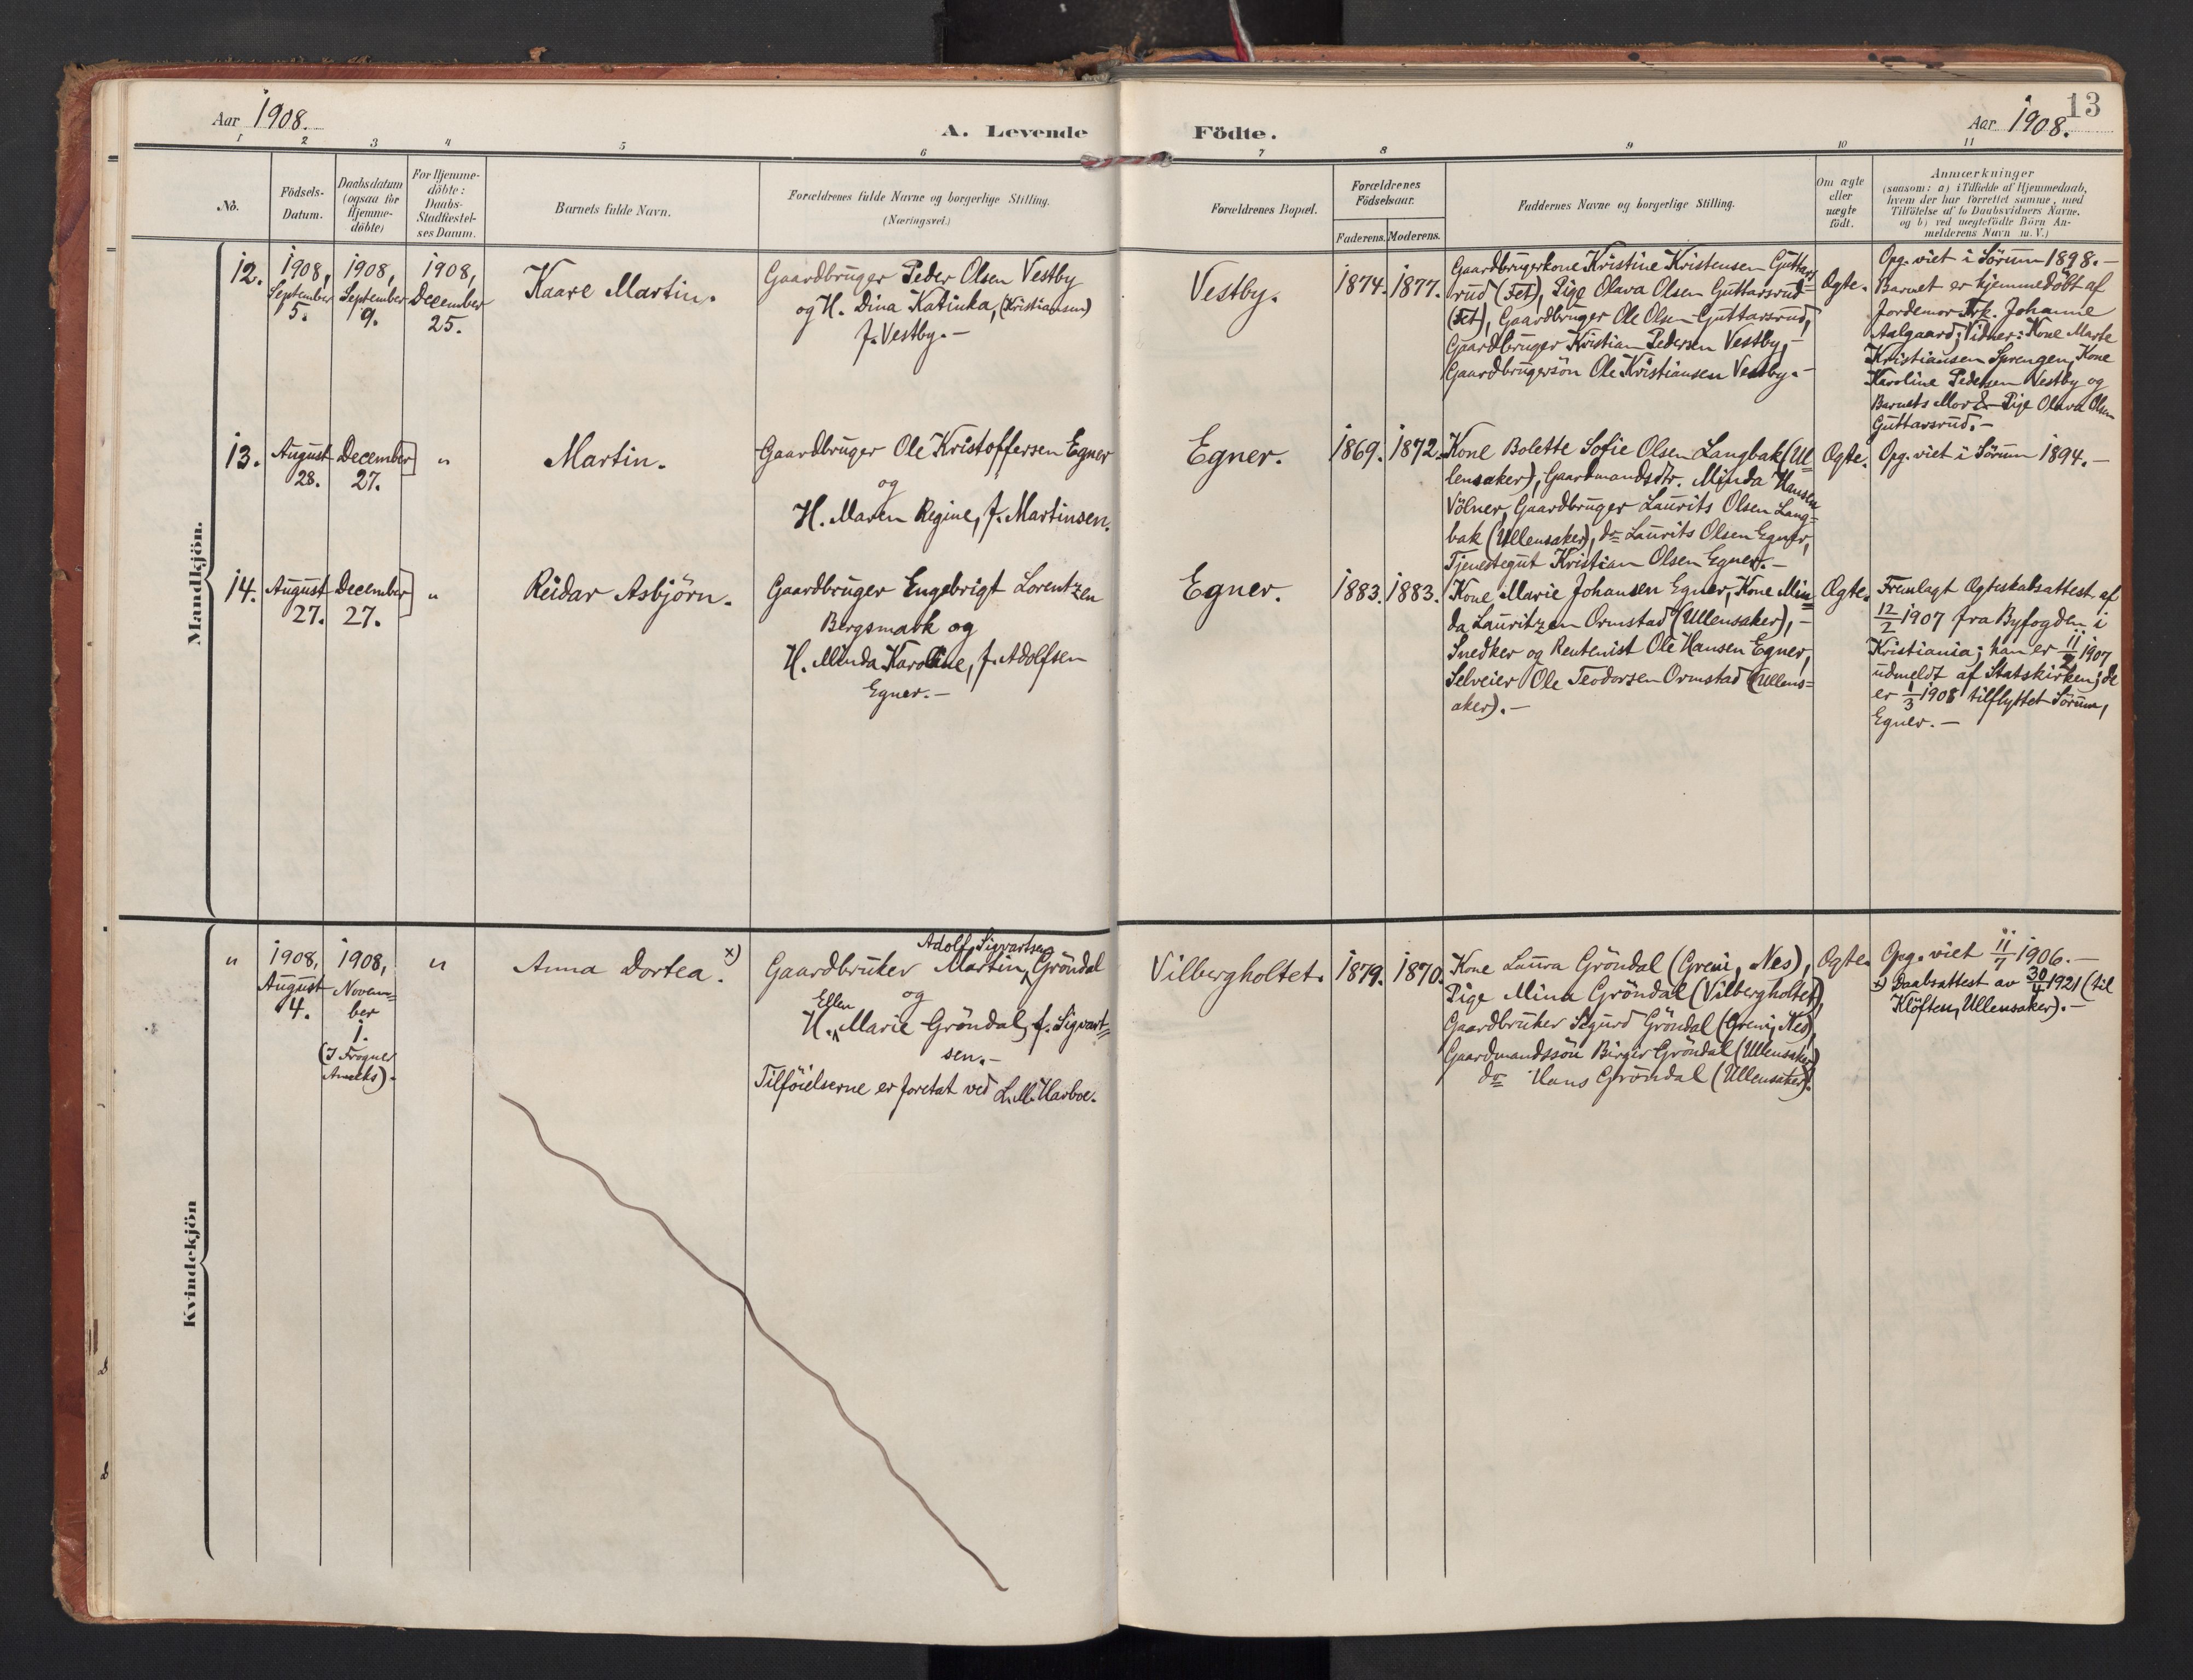 13
Aar 1908.
A. Levende Födte.
Aar 1908.
1 2 3 4 5 6 7 8 9 10 11
No.
Födsels-
Datum.
Daabsdatum
(ogsaa for
Hjemme-
döbte)
For Hjemme-
döbte:
Daabs-
Stadfæstel-
ses Datum.
Barnets fulde Navn.
Forældrenes fulde Navne og borgerlige Stilling.
(Næringsvei.)
Forældrenes Bopæl.
Forældrenes
Födselsaar.
Faderens. Moderens.
Faddernes Navne og borgerlige Stilling.
Om ægte
eller
uægte
födt.
Anmærkninger
(saasom: a) i Tilfælde af Hjemmedaab,
hvem der har forrettet samme, med
Tilföielse af to Daabsvidners Navne,
og b) ved uægtefödte Börn An-
melderens Navn m. V.)
Mandkjön.
12.
1908,
September
5.
1908,
September
9.
1908,
December
25.
Kaare Martin.
Gaardbruger Peder Olsen Vestby
og H. Dina Katinka, (Kristiansen)
f. Vestby.-
Vestby.
1874. 1877.
Gaardbrugerkone Kristine Kristensen Guttars
rud (Fet), Pige Olava Olsen Guttarsrud
(Fet), Gaardbruger Ole Olsen Guttarsrud,
Gaardbruger Kristian Pedersen Vestby,-
Gaardbrugersön Ole Kristiansen Vestby.-
Ægte.
Opg. viet i Sörum 1898.-
Barnet er hjemmedöbt af
Jordemor Frk. Johanne
Aalgaard; Vidner: Kone Marte
Kristiansen Sprengen, Kone
Karoline Pedersen Vestby og
Barnets Mor & Pige Olava Olsen
Guttarsrud.-
13.
August
28.
December
27.
"
Martin.
Gaardbruger Ole Kristoffersen Egner
og
H. Maren Regine, f. Martinsen.
Egner.
1869. 1872.
Kone Bolette Sofie Olsen Langbak (Ul=
lensaker), Gaardmandsdtr. Minda Hansen
Völner, Gaardbruger Laurits Olsen Lang=
bak (Ullensaker), do Laurits Olsen Egner,
Tjenestegut Kristian Olsen Egner.-
Ægte.
Opg. viet i Sörum 1894.-
14.
August
27.
December
27.
"
Reidar Asbjörn.
Gaardbruger Engebrigt Lorentzen
Bergsmark og
H. Minda Karoline, f. Adolfsen
Egner.-
Egner.
1883. 1883.
Kone Marie Johansen Egner, Kone Min=
da Lauritzen Ormstad (Ullensaker),-
Snedker og Rentenist Ole Hansen Egner,
Selveier Ole Teodorsen Ormstad (Ullens=
aker).-
Ægte.
Fremlagt Ægteskabsattest af
12/2 1907 fra Byfogden i
Kristiania; han er 11/2 1907
udmeldt af Statskirken; de
er 1/3 1908 tilflyttet Sörum,
Egner.-
Kvindekjön
"
1908,
August
4.
1908,
Novem=
ber
1.
(I Frogner
Anneks).
"
Anna Dortea. x)
Adolf Sigvartsen
Gaardbruker Martin Gröndal
og
Ellen
H. Marie Gröndal, f. Sigvart=
sen.-
Tilföielserne er foretat ved L.M. Harboe.
Vilbergholtet.
1879. 1870.
Kone Laura Gröndal (Greni, Nes),
Pige Mina Gröndal (Vilbergholtet),
Gaardbruker Sigurd Gröndal (Greni, Nes),
Gaardmandssön Birger Gröndal (Ullensaker)
do Hans Gröndal (Ullensaker).
Ægte.
Opg. viet 11/7 1906.-
x) Daabsattest av 30/4 1921 (til
Klöften, Ullensaker).-